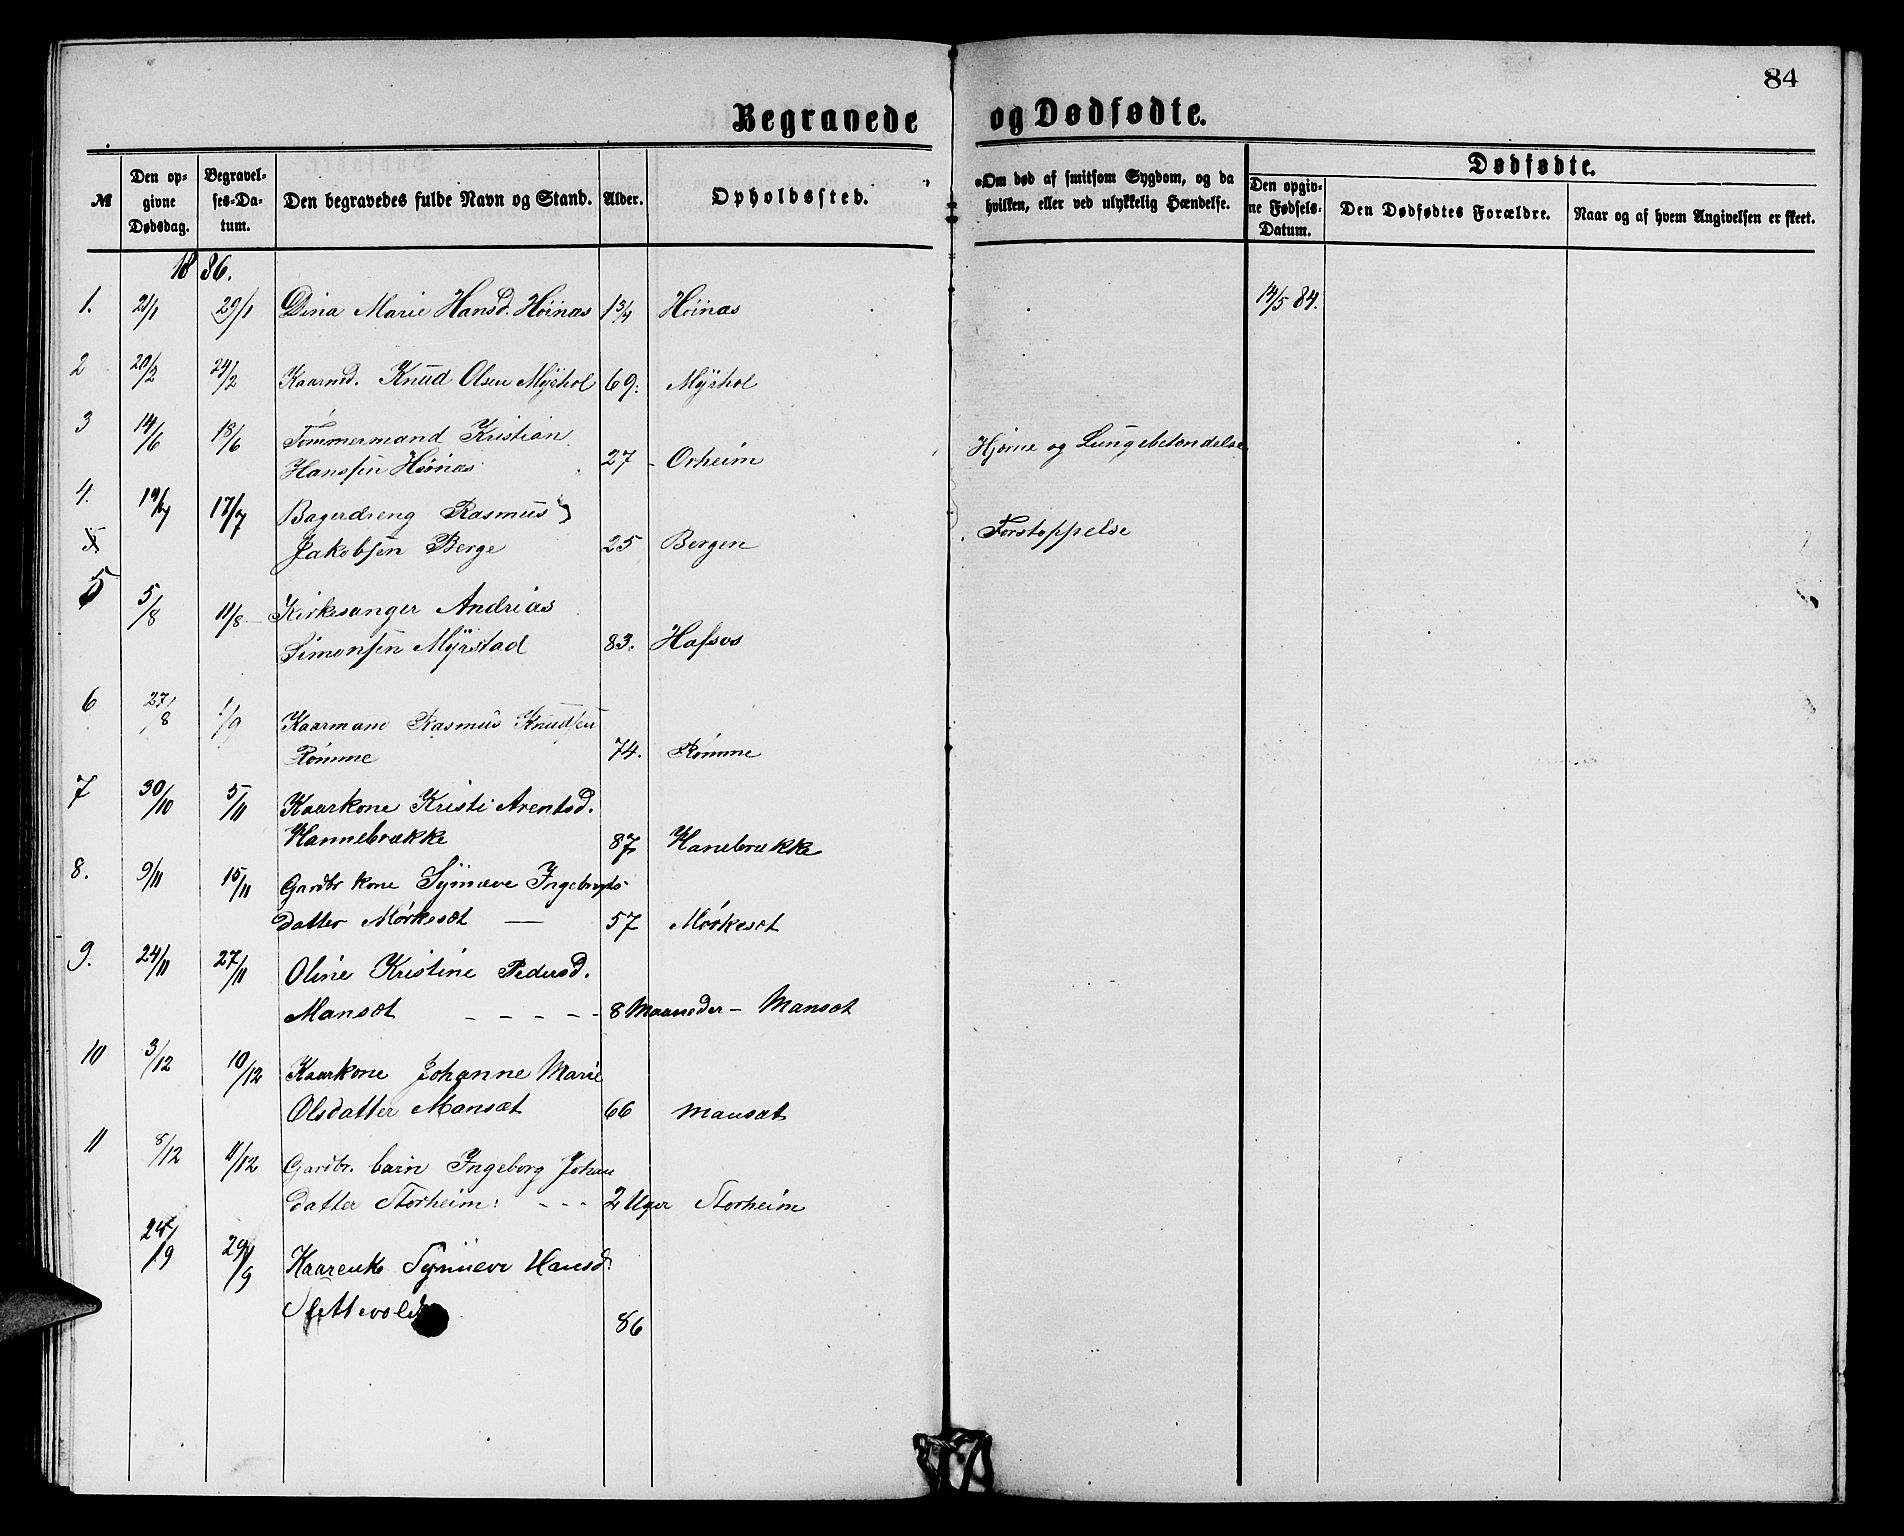 84
Begravede og Dødfødte.
№
Den opgivne Dødsdag.
Begravelses-Datum.
Den begravedes fulde Navn og Stand.
Alder.
Opholdssted.
Om død af smitsom Sygdom, og da hvilken, eller ved ulykkelig Hændelse.
Dødfødte.
Den opgivne Fødsels-Datum.
Den Dødfødtes Forældre.
Naar og af hvem Angivelsen er skeet.
1886.
1. 21/1 29/1 Dina Marie Hansd. Höinæs 1 3/4 Höinæs 14/5 84.
2 20/2 24/2 Kaarmd. Knud Olsen Myrhol 69. Myrhol
3 14/6 18/6 Tømmermand Kristian
Hanssen Höinæs 27 - Orheim Hjerne og Lungebetændelse
4. 14/7 17/7 Bagerdreng Rasmus
Jakobsen Berge 25 Bergen Forstoppelse
5 5/8 11/8 Kirkesanger Andrias
Simonsen Myrstad 83. Hafsos
6 27/8 1/9 Kaarmand Rasmus Knudsen
Rømme 74. Rømme
7 30/10 5/11 Kaarkone Kristi Arentsd.
Hannebrække 87 Hanebrække
8. 9/11 15/11 Gardbr kone Synneve Ingebrigts-
datter Mørkesæt 57 Mørkesæt
9. 24/11 27/11 Oline Kristine Pedersd.
Mansæt - - - - - 8 Maaneder - Mansæt
10 3/12 10/12 Kaarkone Johanne Marie
Olsdatter Mansæt 66 Mansæt
11 8/12 11/12 Gardbr. barn Ingeborg Johan
datter Storheim: - - - 2 Uger Storheim
24/9 29/9 Kaarenke Synneve Hansd.
Slettevold 86